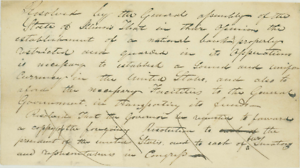 Resolved by the General assembly of the
State of Illinois That in their opinion the
establishment of a national bank properly
restricted and guarded in its operations
is necessary to establish a sound and uniform
currency in the United States, and also to
afford the necessary facilities to the General
Government in transporting its funds
Resolved, That the Governor be requested to forward
a copy of the foregoing resolution to the
president of the United States, and to each of our Senators
and representatives in Congress